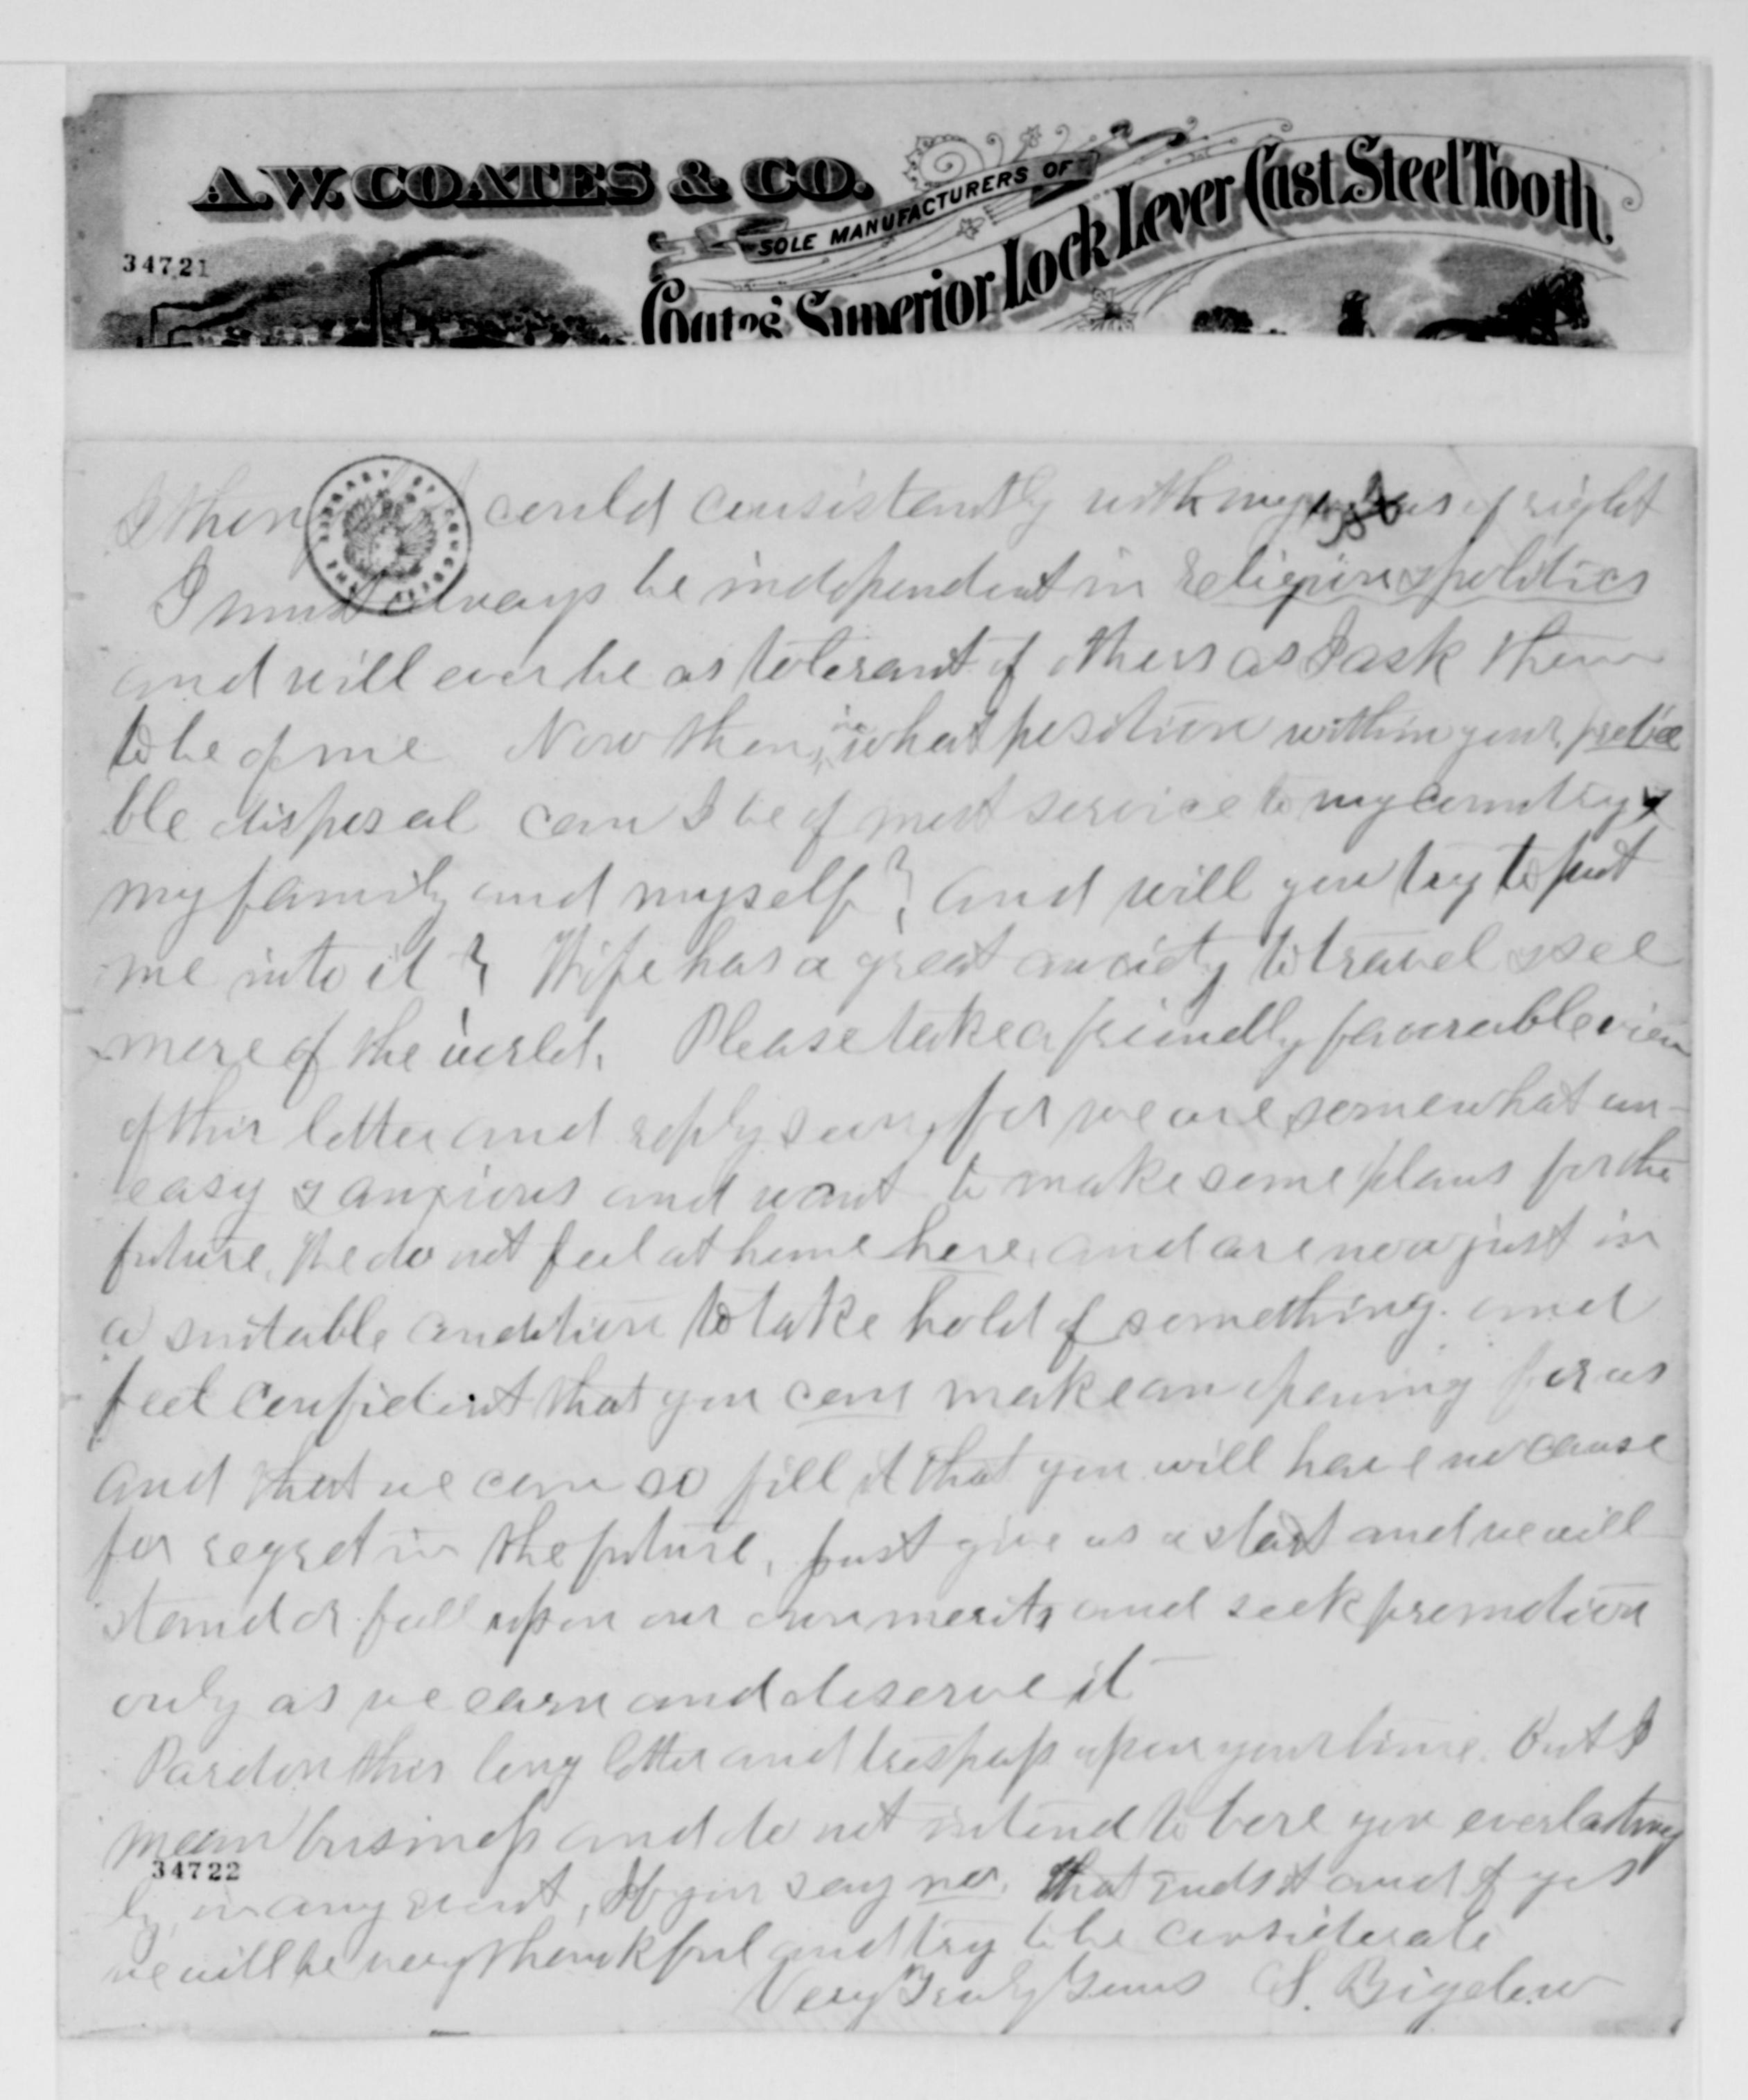 A.W. COATES & CO.
SOLE MANUFACTURERS OF
Coates' Superior Lock Lever Cast Steel Tooth
34721
I then could consistently with my ideas of right
I must always be independent in religion & politics
and will ever be as tolerant of others as I ask them
to be of me Now then, in what position within your
ble disposal can I be of most service to my country &
my family and myself? and will you try to put
me into it? Wife has a great anxiety to travel & see
more of the world. Please take a friendly favorable view
of this letter and reply soon, for we are somewhat un-
easy & anxious and want to make some plans for the
future, We do not feel at home here, and are now just in
a suitable condition to take hold of something. and
feel confident that you can make an opening for us
and that we can so fill it that you will have no cause
for regret in the future, Just give us a start and we will
stand or fall upon our own merits and seek promotion
only as we earn and deserve it
Pardon this long letter and trespass upon your time. But I
mean business and do not intend to bore you everlasting
34722
ly, in any event, If you say no, that ends it and if yes
we will be very thankful and try to be considerate
Very Truly Yours S. Bigelow